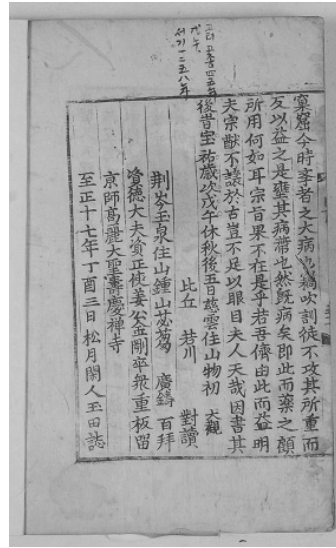 고려 고종 四五年
戊午
서기 一二五八年
窠窟今時學者之大病也竊吹訓徒不攻其所重而
友以益之是壅其病滯也然既病矣即此而藥之顧
所用何如耳宗旨果不在是乎若吾儕由此而益明
夫宗猷不讓於古豈不足以眼目夫人天哉因書其
後昔宝祐歲次戊午休秋後五日慈雲住山物初 大觀
比丘 若川 對讀
荆岑玉泉住山鍾山苾蒭 廣鑄 百拜
資德大夫資正使姜公金剛率衆重板留
京師高麗大聖壽慶禪寺
至正十七年丁酉三日松月閑人玉田誌